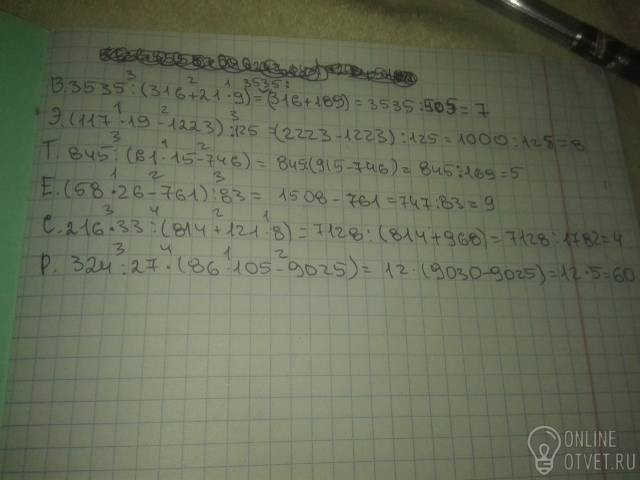 В. 3535:(316+21·9)=3535:(316+189)=3535:505=7
Э.(117·19-1223):125=(2223-1223):125=1000:125=8
Т. 845:(61·15-746)=845:(915-746)=845:169=5
Е.(58·26-761):83= 1508-761=747:83=9
С.216·33:(814+121·8)=7128:(814+968)=7128:1782=4
Р. 324:27·(86·105-9025)=12·(9030-9025)=12·5=60
ONLINE
OTVET.RU